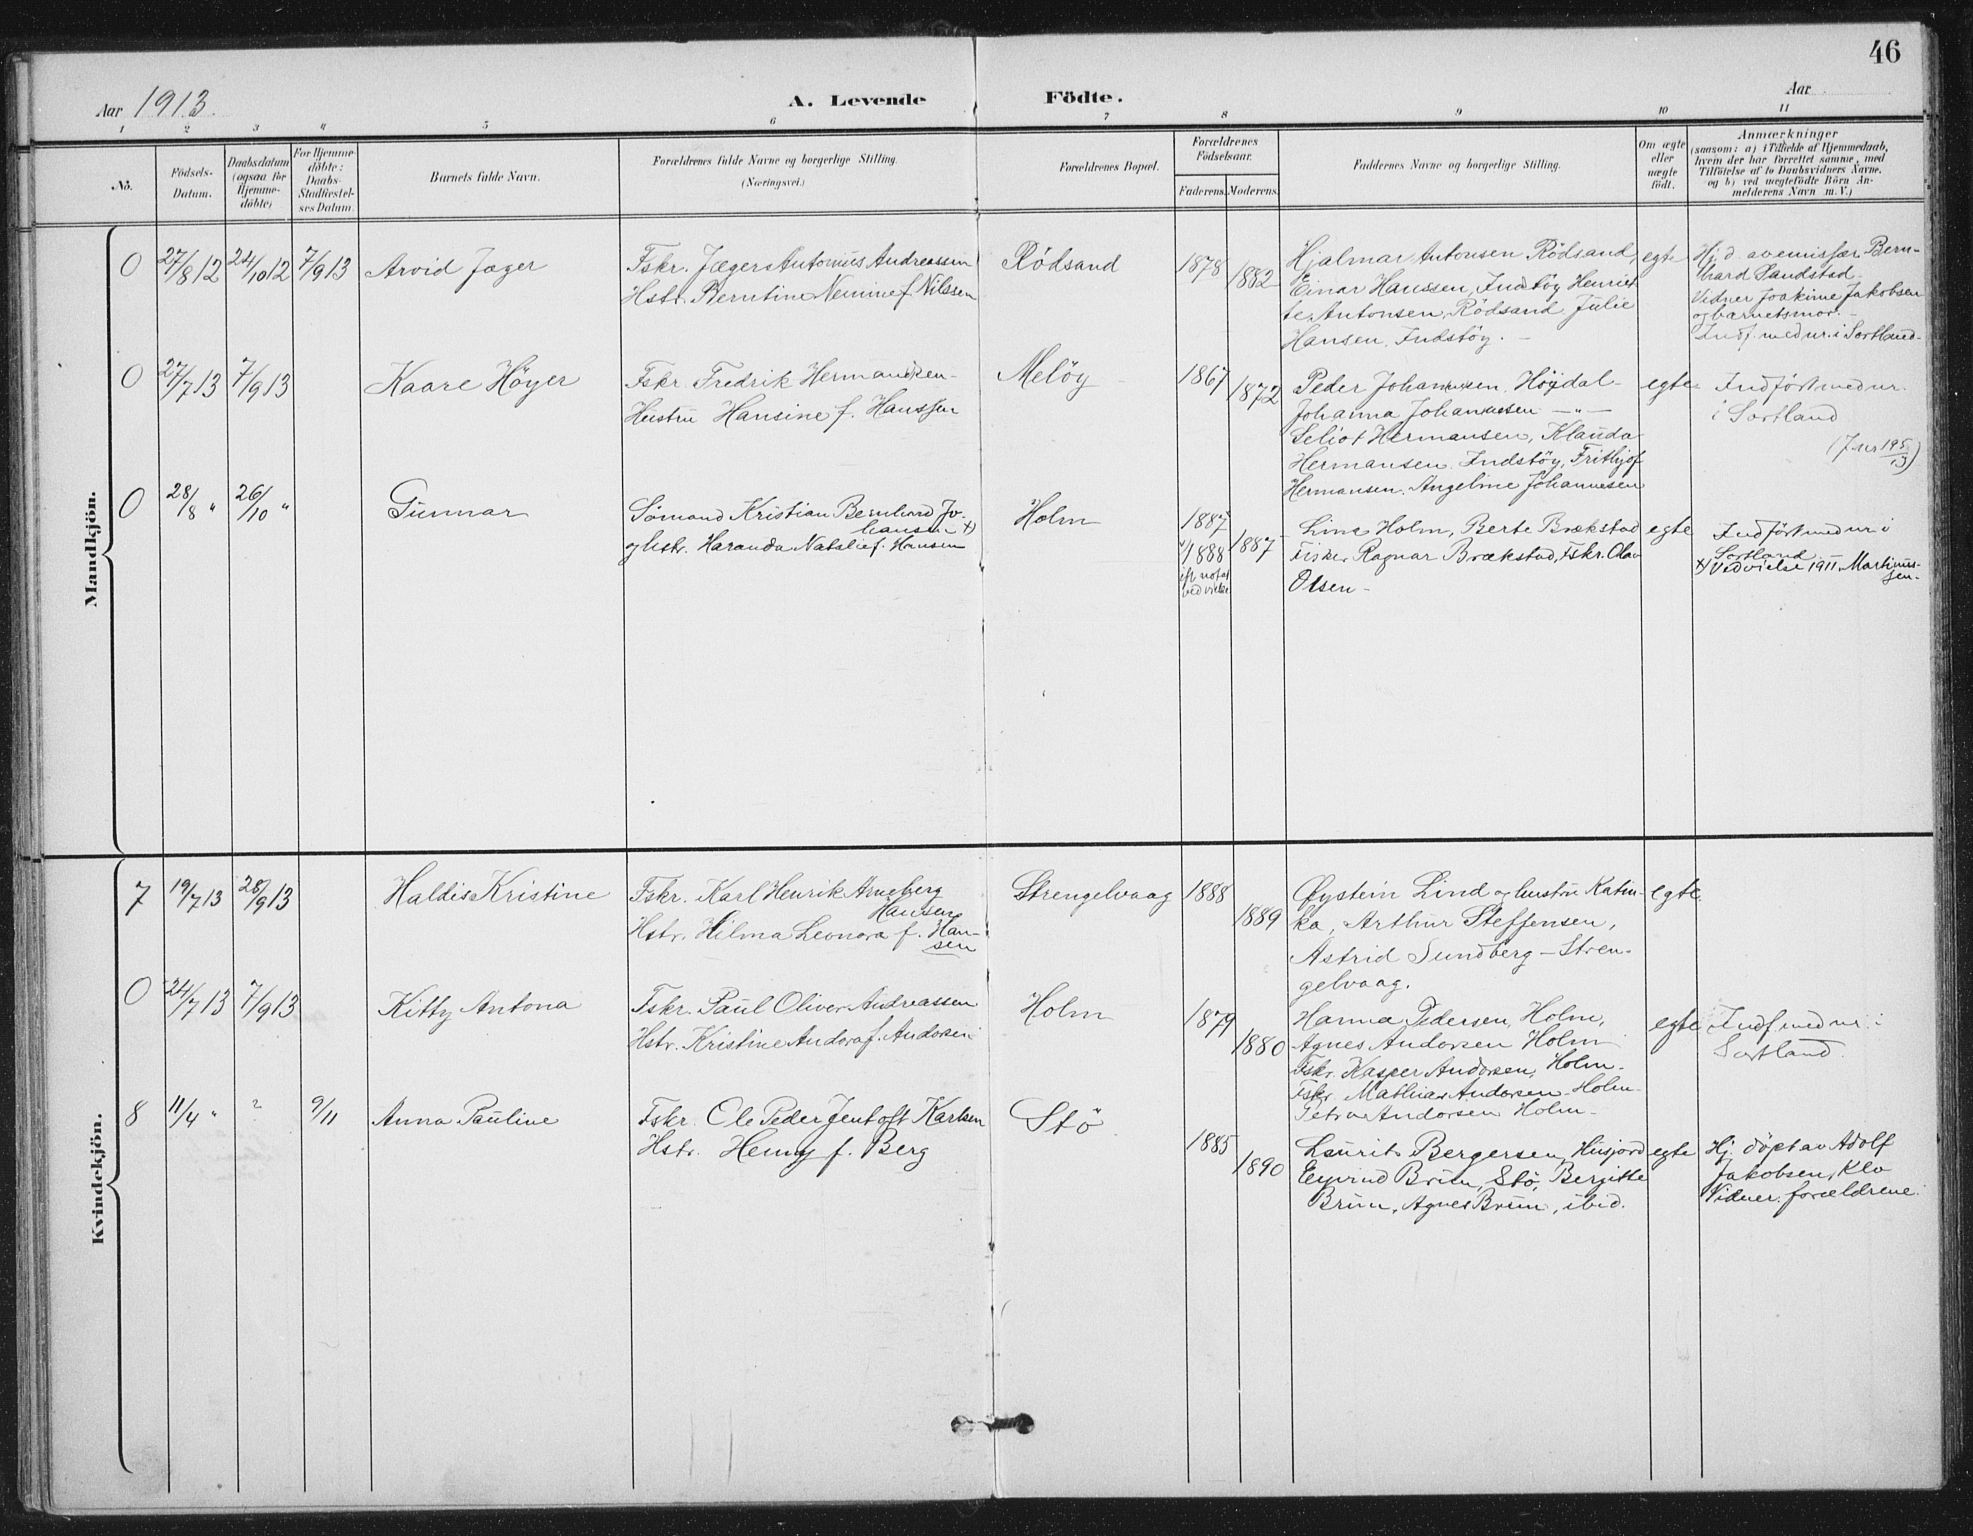 46
Aar 1913.
A. Levende Födte.
Aar
1 2 3 4 5 6 7 8 9 10 11
No.
Födsels-Datum.
Daabsdatum (ogsaa for Hjemme-döbte)
For Hjemme-döbte: Daabs-Stadfæstel-ses Datum.
Barnets fulde Navn.
Forældrenes fulde Navne og borgerlige Stilling.
(Næringsvei.)
Forældrenes Bopæl.
Forældrenes Födselsaar.
Faderens. Moderens.
Faddernes Navne og borgerlige Stilling.
Om ægte eller uægte födt.
Anmærkninger
(saasom: a) i Tilfælde af Hjemmedaab,
hvem der har forrettet samme, med
Tilföielse af to Daabsvidners Navne.
og b) ved uægtefödte Börn An-
melderens Navn m. V.)
Mandkjön.
0 27/8 12 24/10 12 7/9 13 Arvid Jæger
Fskr. Jæger Antonius Andreassen
Hstr. Berntine f. Nilssen
Rödsand
1878 1882
Hjalmar Antonsen Rödsand,
Einar Hanssen, Indstöy Henriet
te Antonsen, Rödsand. Julie
Hansen, Indstöy. –
egte
Hj. d. av emissær Bern-
hard Sandstad.
Vidner Joakime Jakobsen
og barnets mor. –
Indf. med nr. i Sortland.
0 27/7 13 7/9 13 Kaare Höyer
Fskr. Fredrik Hermansen –
Hustru Hansine f. Hanssen
Melöy
1867 1872
Peder Johannesen, Höydal –
Johanna Johannesen — " —
Seliot Hermansen, Klauda
Hermansen. Indstöy, Frithjof
Hermansen. Angeline Johannesen
egte
Indført med nr.
i Sortland
0 28/8 " 26/10 " Gunnar
Sömand Kristian Bernhard Jo-
hansen x)
og hstr. Haranda Natalie f. Hansen
Holm
1887
x) 1888
ifl notat
ved vielse
1887
Lina Holm, Berte Brækstad
Ragnar Brækstad, Fskr. Olav
Olsen –
egte
Indført med nr i
Sortland
x) Ved vielse 1911 Martinus-
sen –
Kvindekjön.
7 19/7 13 28/9 13 Haldis Kristine
Fskr. Karl Henrik Arneberg
Hansen
Hstr. Hilma Leonora f. Han-
sen
Strengelvaag
1888 1889
Øystein Lind og hustru Katin-
ka, Arthur Steffensen,
Astrid Sundberg – Stren-
gelvaag.
egte.
0 24/7 13 7/9 13 Kitty Antona
Fskr. Paul Oliver Andreassen
Hstr. Kristine Andora f. Andorsen
Holm
1879 1880
Hanna Pedersen, Holm,
Agnes Andorsen Holm
Fskr. Kasper Andorsen, Holm –
Fskr. Mathias Andorsen – Holm –
Petra Andorsen Holm –
egte
Indf med nr. i
Sortland.
8 11/4 " ? 9/11 Anna Pauline
Fskr. Ole Peder Jentoft Karlsen
Hstr. Henny f. Berg
Stö
1885 1890
Laurits Bergersen, Husjord
Eyvind Brun, Stö, Bergitte
Brun, Agnes Brun, ibid.
egte
Hj. döpt av Adolf
Jakobsen, Klo
Vidner: forældrene.